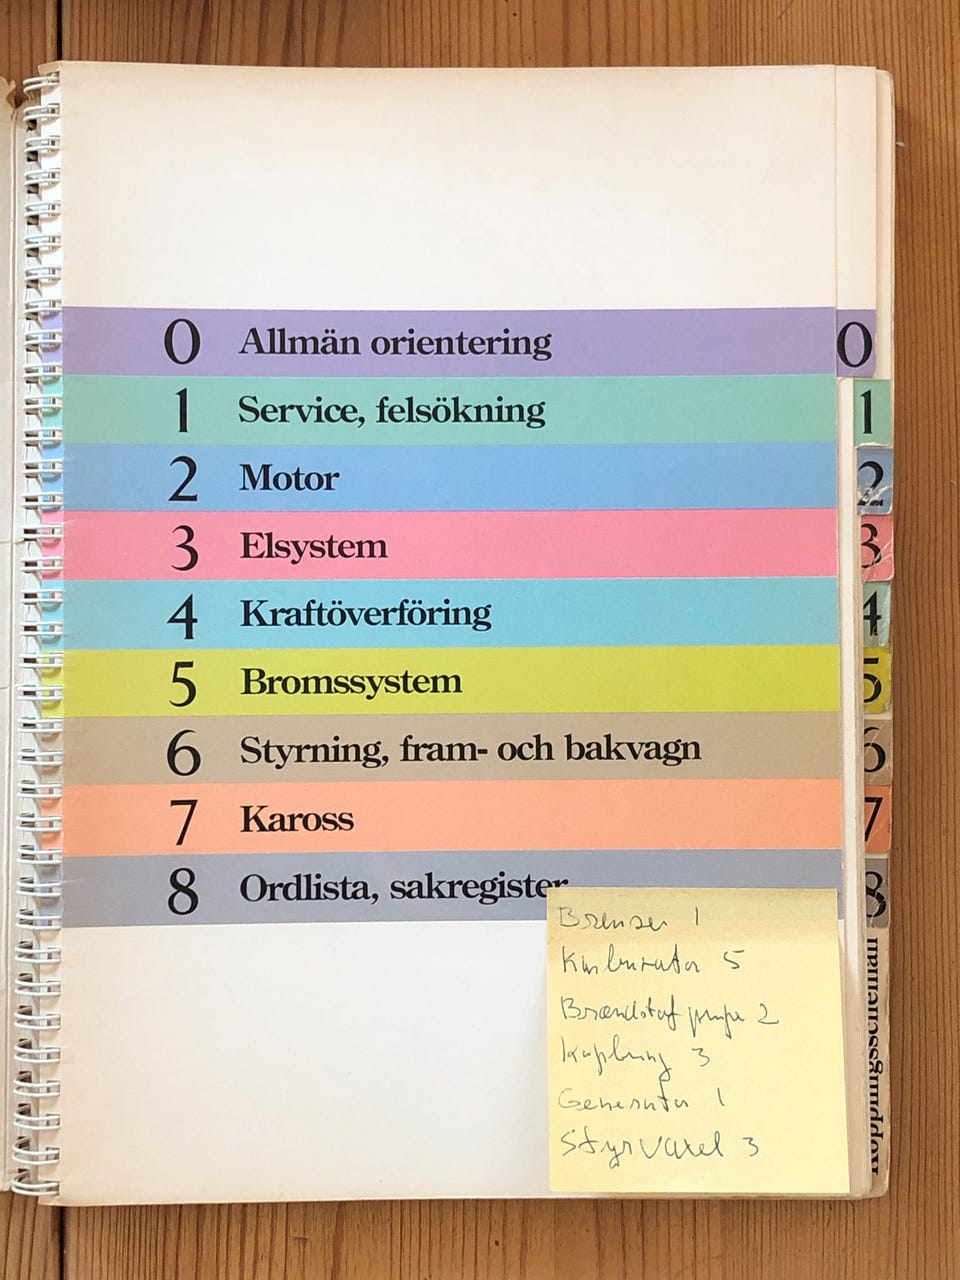 0 Allmän orientering 0
1 Service, felsökning 1
2 Motor 2
3 Elsystem 3
4 Kraftöverföring 4
5 Bromssystem 5
6 Styrning, fram- och bakvagn 6
7 Kaross 7
8 Ordlista, sakregister 8
Kopplingsscheman
Bremser 1
Karburator 5
Brændstof pumpe 2
Kopling 3
Generator 1
Styrvaxel 3